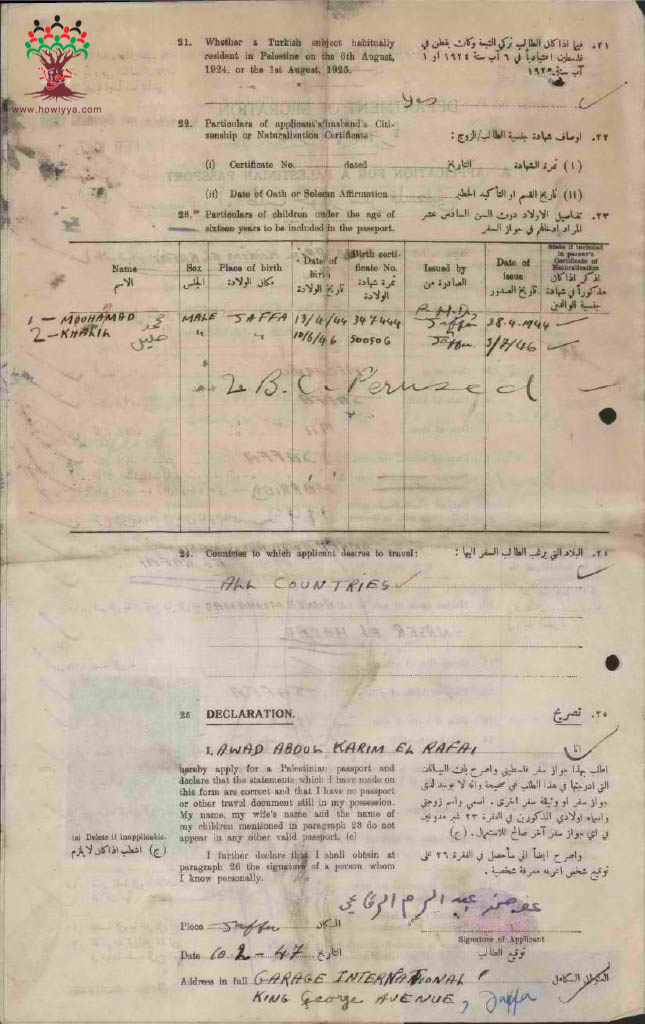 www.howiyya.com
21. Whether a Turkish subject habitually resident in Palestine on the 6th August, 1924, or the 1st August, 1925.
٢١. فيما اذا كان الطالب تركي التبعة وكان يقطن في فلسطين اعتيادياً في ٦ آب سنة ١٩٢٤ او ١ آب سنة ١٩٢٥
Yes
22. Particulars of applicant's/husband's Citizenship or Naturalization Certificate:
٢٢. اوصاف شهادة جنسية الطالب/الزوج:
(i) Certificate No. dated
(١) نمرة الشهادة التاريخ
(ii) Date of Oath or Solemn Affirmation
(ii) تاريخ القسم او التأكيد الخطير
23. Particulars of children under the age of sixteen years to be included in the passport.
٢٣. تفاصيل الاولاد دون السن السادس عشر المراد ادخالهم في جواز السفر
Name الاسم
Sex الجنس
Place of birth مكان الولادة
Date of birth تاريخ الولادة
Birth certificate No. نمرة شهادة الولادة
Issued by الصادرة من
Date of issue تاريخ الصدور
State if included in parent's Certificate of Naturalization اذكر اذا كان مذكوراً في شهادة جنسية الوالدين
1- MOUHAMAD محمد MALE JAFFA 13/4/44 347444 P.H.D. Jaffa 28.4.1944
2- KHALIL خليل " " 10/6/46 500506 Jaffa 3/7/46
2 B.C. Perused
24. Countries to which applicant desires to travel:
٢٤. البلاد التي يرغب الطالب السفر اليها:
ALL COUNTRIES
25 DECLARATION.
٢٥. تصريح
I, AWAD ABOUL KARIM EL RAFAI
انا
hereby apply for a Palestinian passport and
declare that the statements which I have made on
this form are correct and that I have no passport
or other travel document still in my possession.
My name, my wife's name and the name of
my children mentioned in paragraph 23 do not
appear in any other valid passport. (c)
اطلب بهذا جواز سفر فلسطيني واصرح بان البيانات
التي ادرجتها في هذا الطلب هي صحيحة وانه لا يوجد لدي
جواز سفر او وثيقة سفر اخرى. اسمي واسم زوجتي
واسماء اولادي المذكورين في الفقرة ٢٣ غير مدونين
في اي جواز سفر آخر صالح للاستعمال. (ج)
(c) Delete if inapplicable.
(ج) اشطب اذا كان لا يلزم
I further declare that I shall obtain at
paragraph 26 the signature of a person whom
I know personally.
واصرح ايضاً اني سأحصل في الفقرة ٢٦ على
توقيع شخص اعرفه معرفة شخصية.
عوض عبد الكرم الرفاعي
Place Jaffa المكان
Signature of Applicant
توقيع الطالب
Date 10.2-47 التاريخ
Address in full GARAGE INTERNATIONAL العنوان الكامل
KING George AVENUE, Jaffa